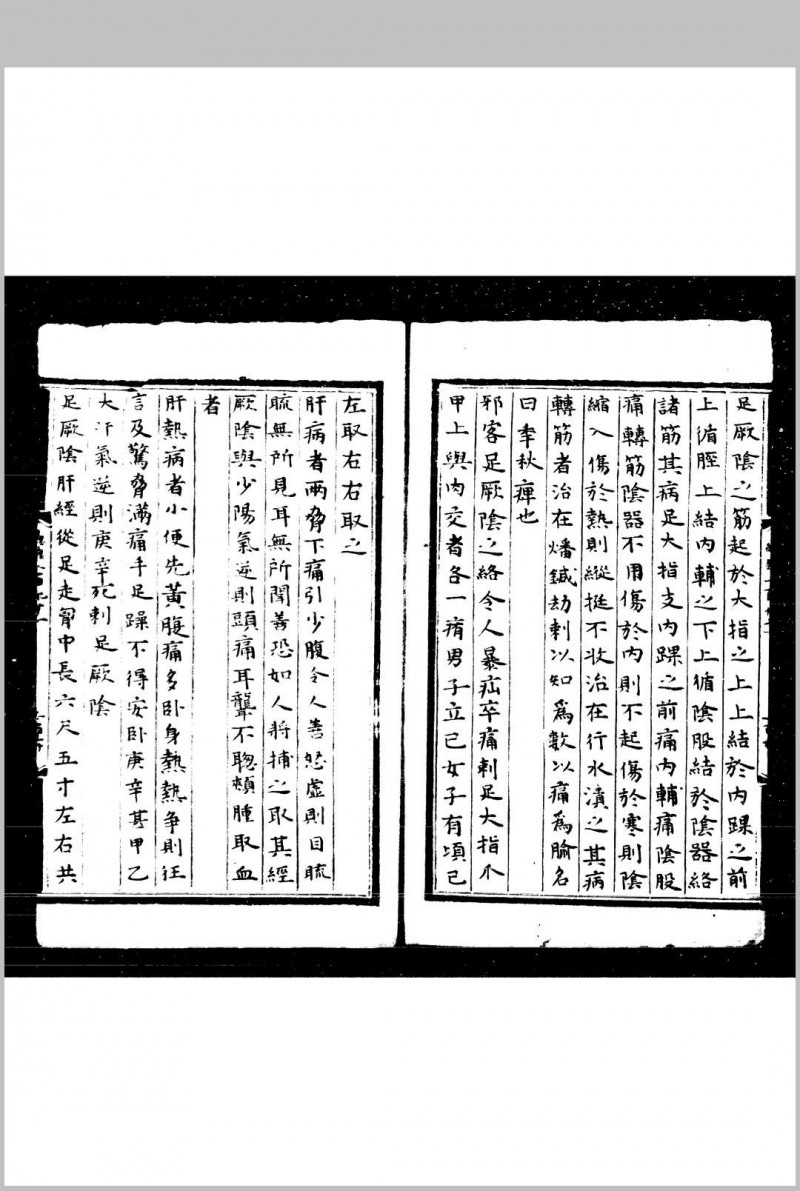 足厥陰之筋起於大指之上上結於內踝之前
上循脛上結內輔之下上循陰股結於陰器絡
諸筋其病足大指支內踝之前痛內輔痛陰股
痛轉筋陰器不用傷於內則不起傷於寒則陰
縮入傷於熱則縱挺不收治在行水漬之其病
轉筋者治在燔鍼劫刺以知爲數以痛爲腧名
曰季秋痺也
邪客足厥陰之絡令人暴疝卒痛刺足大指爪
甲上與肉交者各一痏男子立已女子有頃已
左取右右取之
肝病者兩脅下痛引少腹令人善怒虛則目䀮
䀮無所見耳無所聞善恐如人將捕之取其經
厥陰與少陽氣逆則頭痛耳聾不聦頰腫取血
者
肝熱病者小便先黃腹痛多卧身熱熱爭則狂
言及驚脅滿痛手足躁不得安卧庚辛甚甲乙
大汗氣逆則庚辛死刺足厥陰
足厥陰肝經從足走胷中長六尺五寸左右共